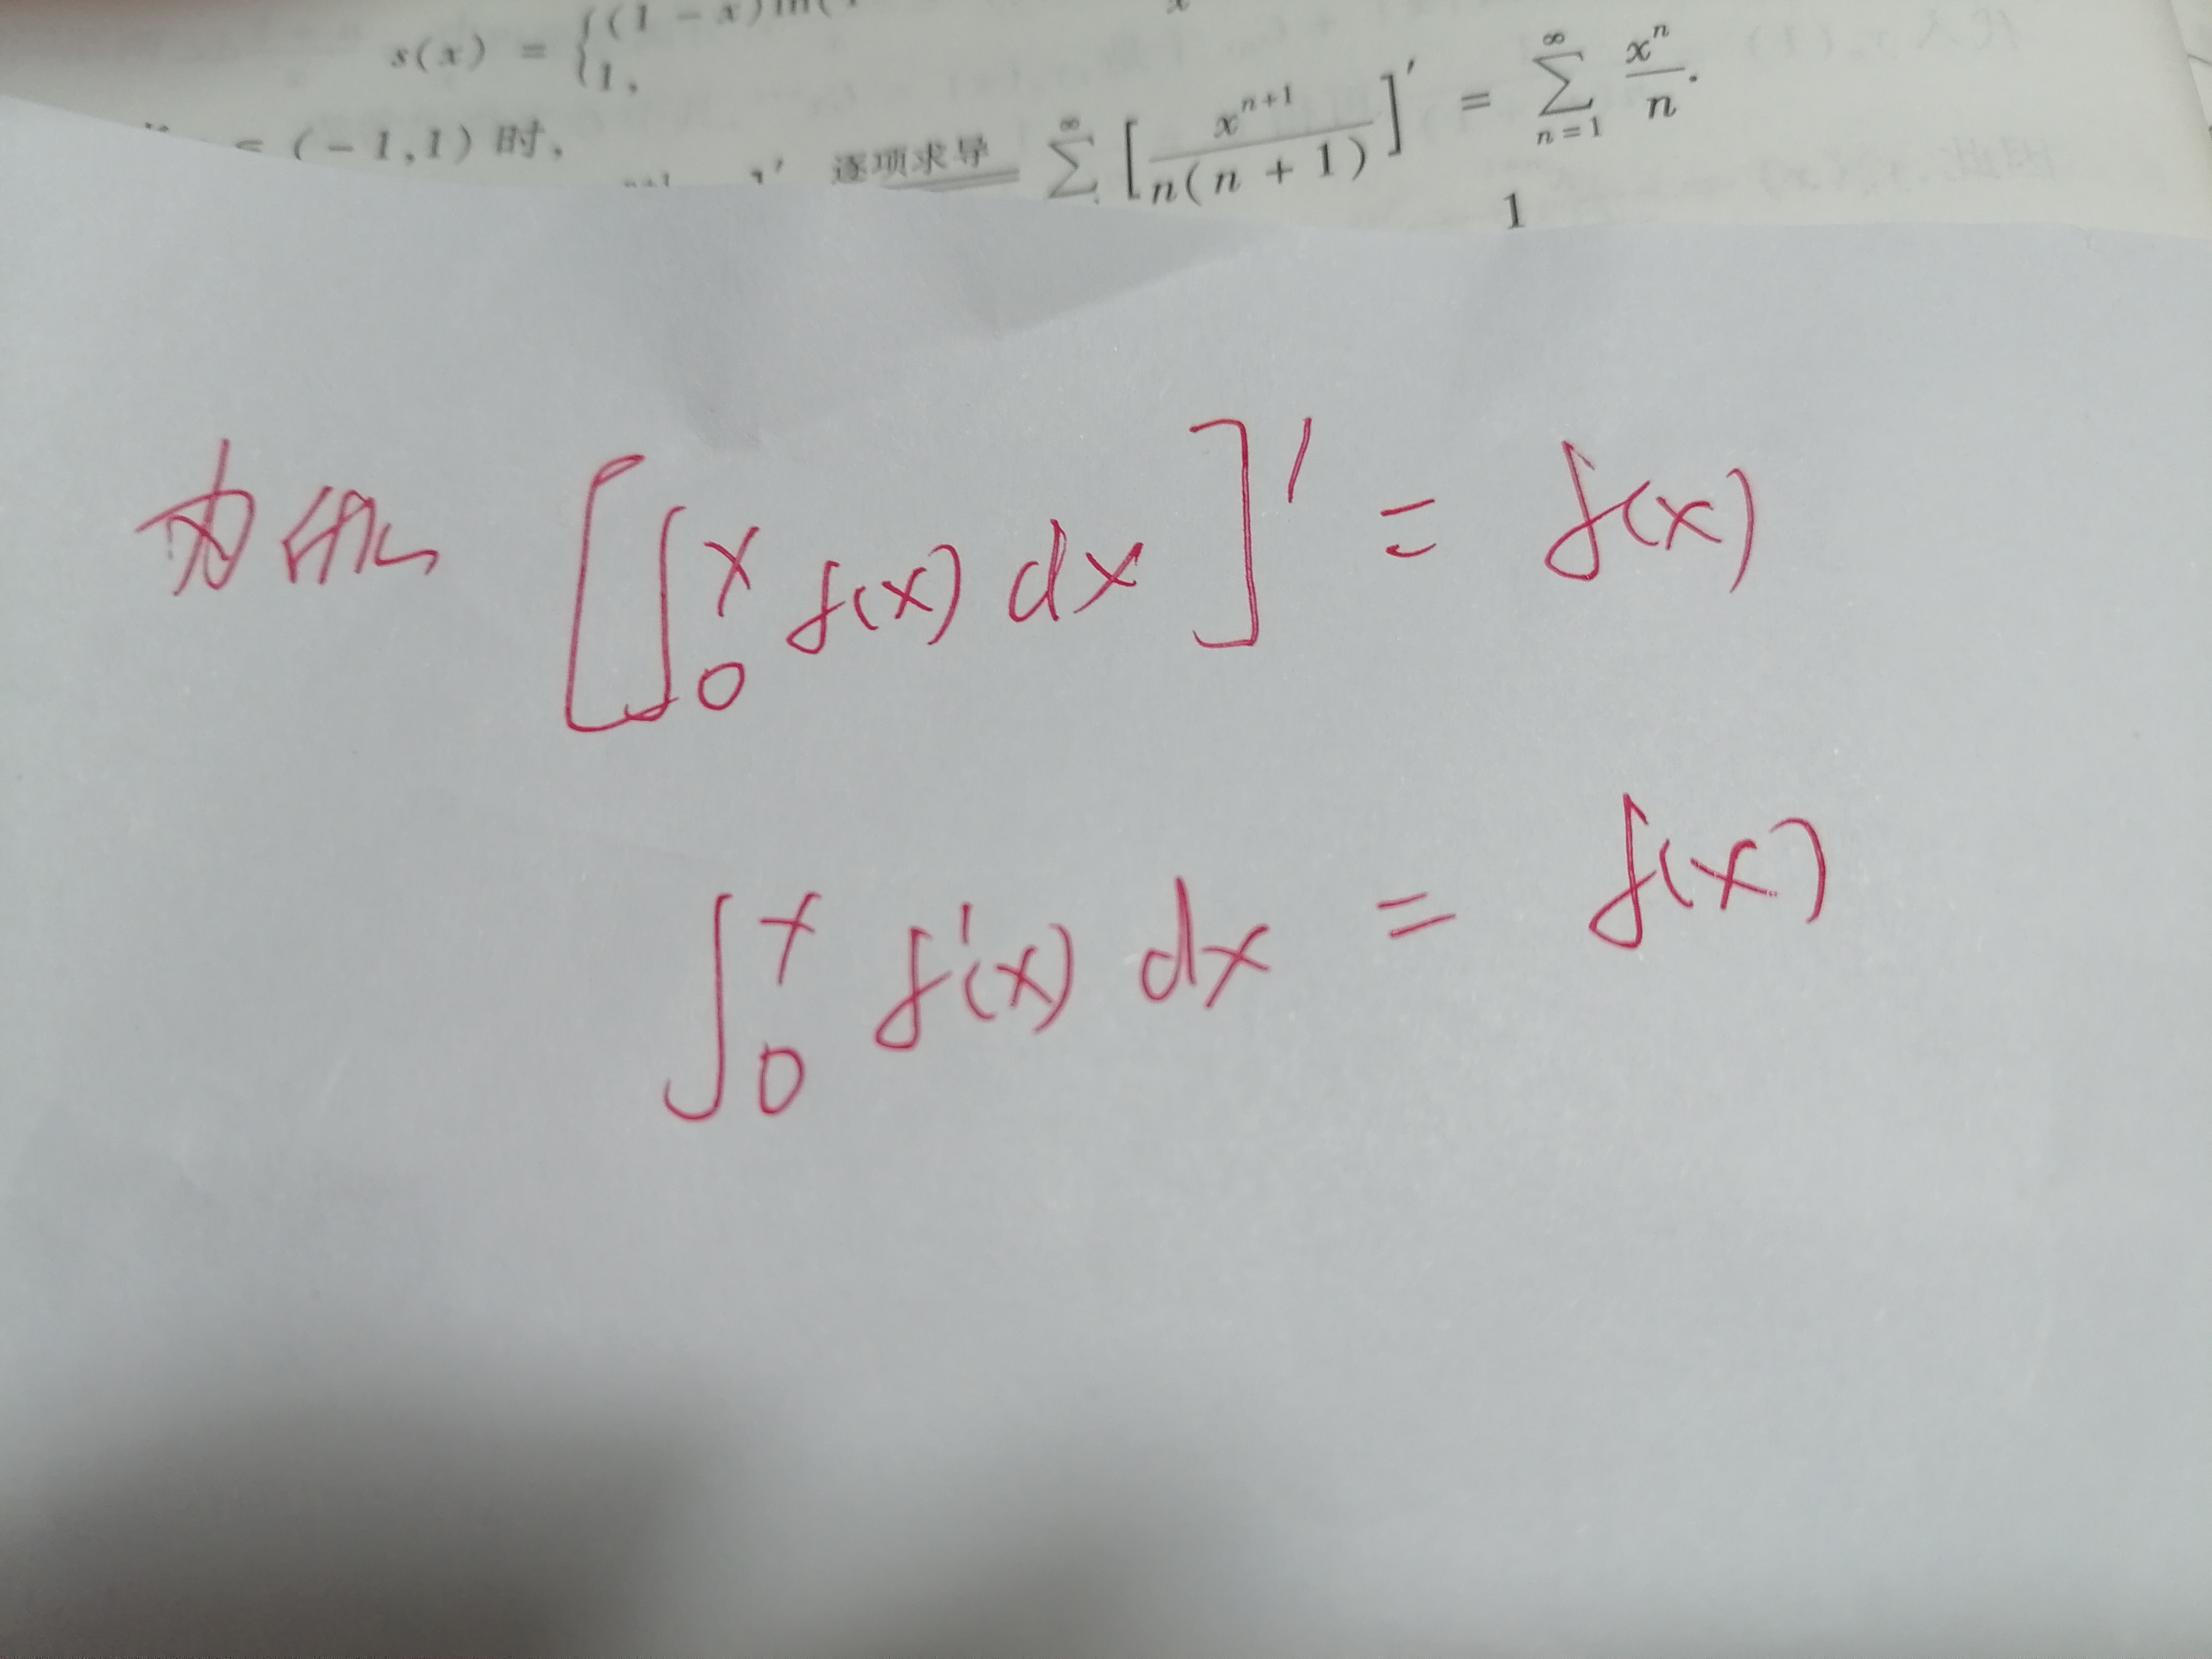 s(x) = {(1 - x)ln(
1,
= (-1,1) 时,
逐项求导 ∑^∞ [x^{n+1}/n(n + 1)]' = ∑_{n=1}^∞ x^n/n.
1
为什么 [∫_0^x f(x) dx]' = f(x)
∫_0^x f'(x) dx = f(x)